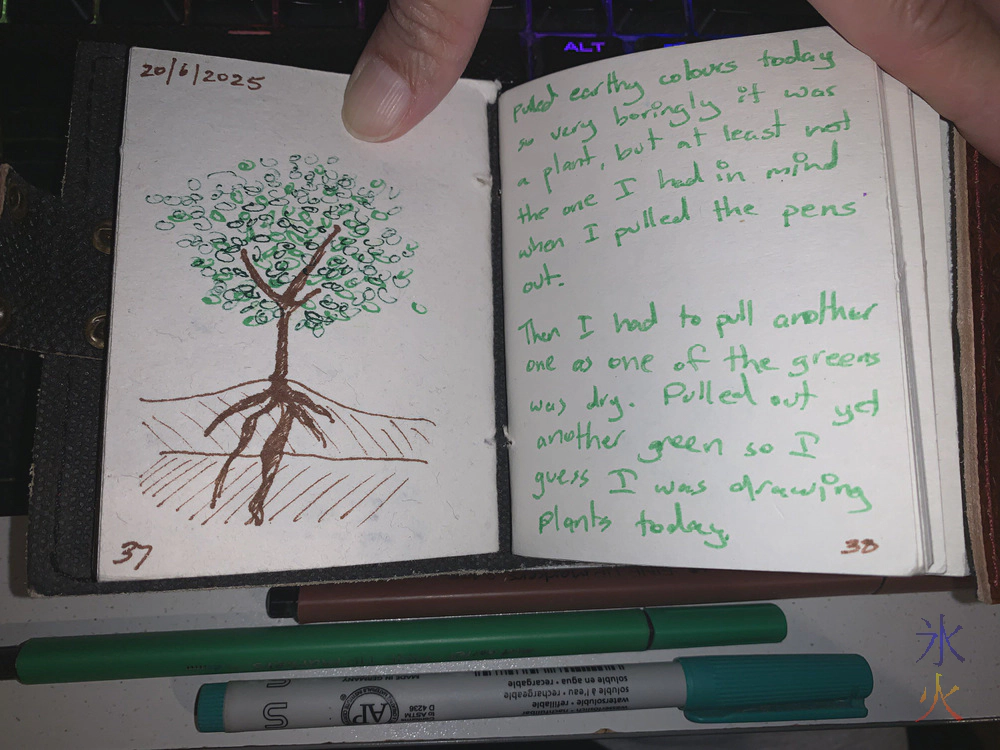 ALT
20/6/2025
pulled earthy colours today
so very boringly it was
a plant, but at least not
the one I had in mind
when I pulled the pens
out.
Then I had to pull another
one as one of the greens
was dry. Pulled out yet
another green so I
guess I was drawing
plants today.
37
38
MADE IN GERMANY
soluble en agua • recargable
soluble à l'eau • rechargeable
watersoluble • refillable
AP
to ASTM
D 4236
S
氷
火